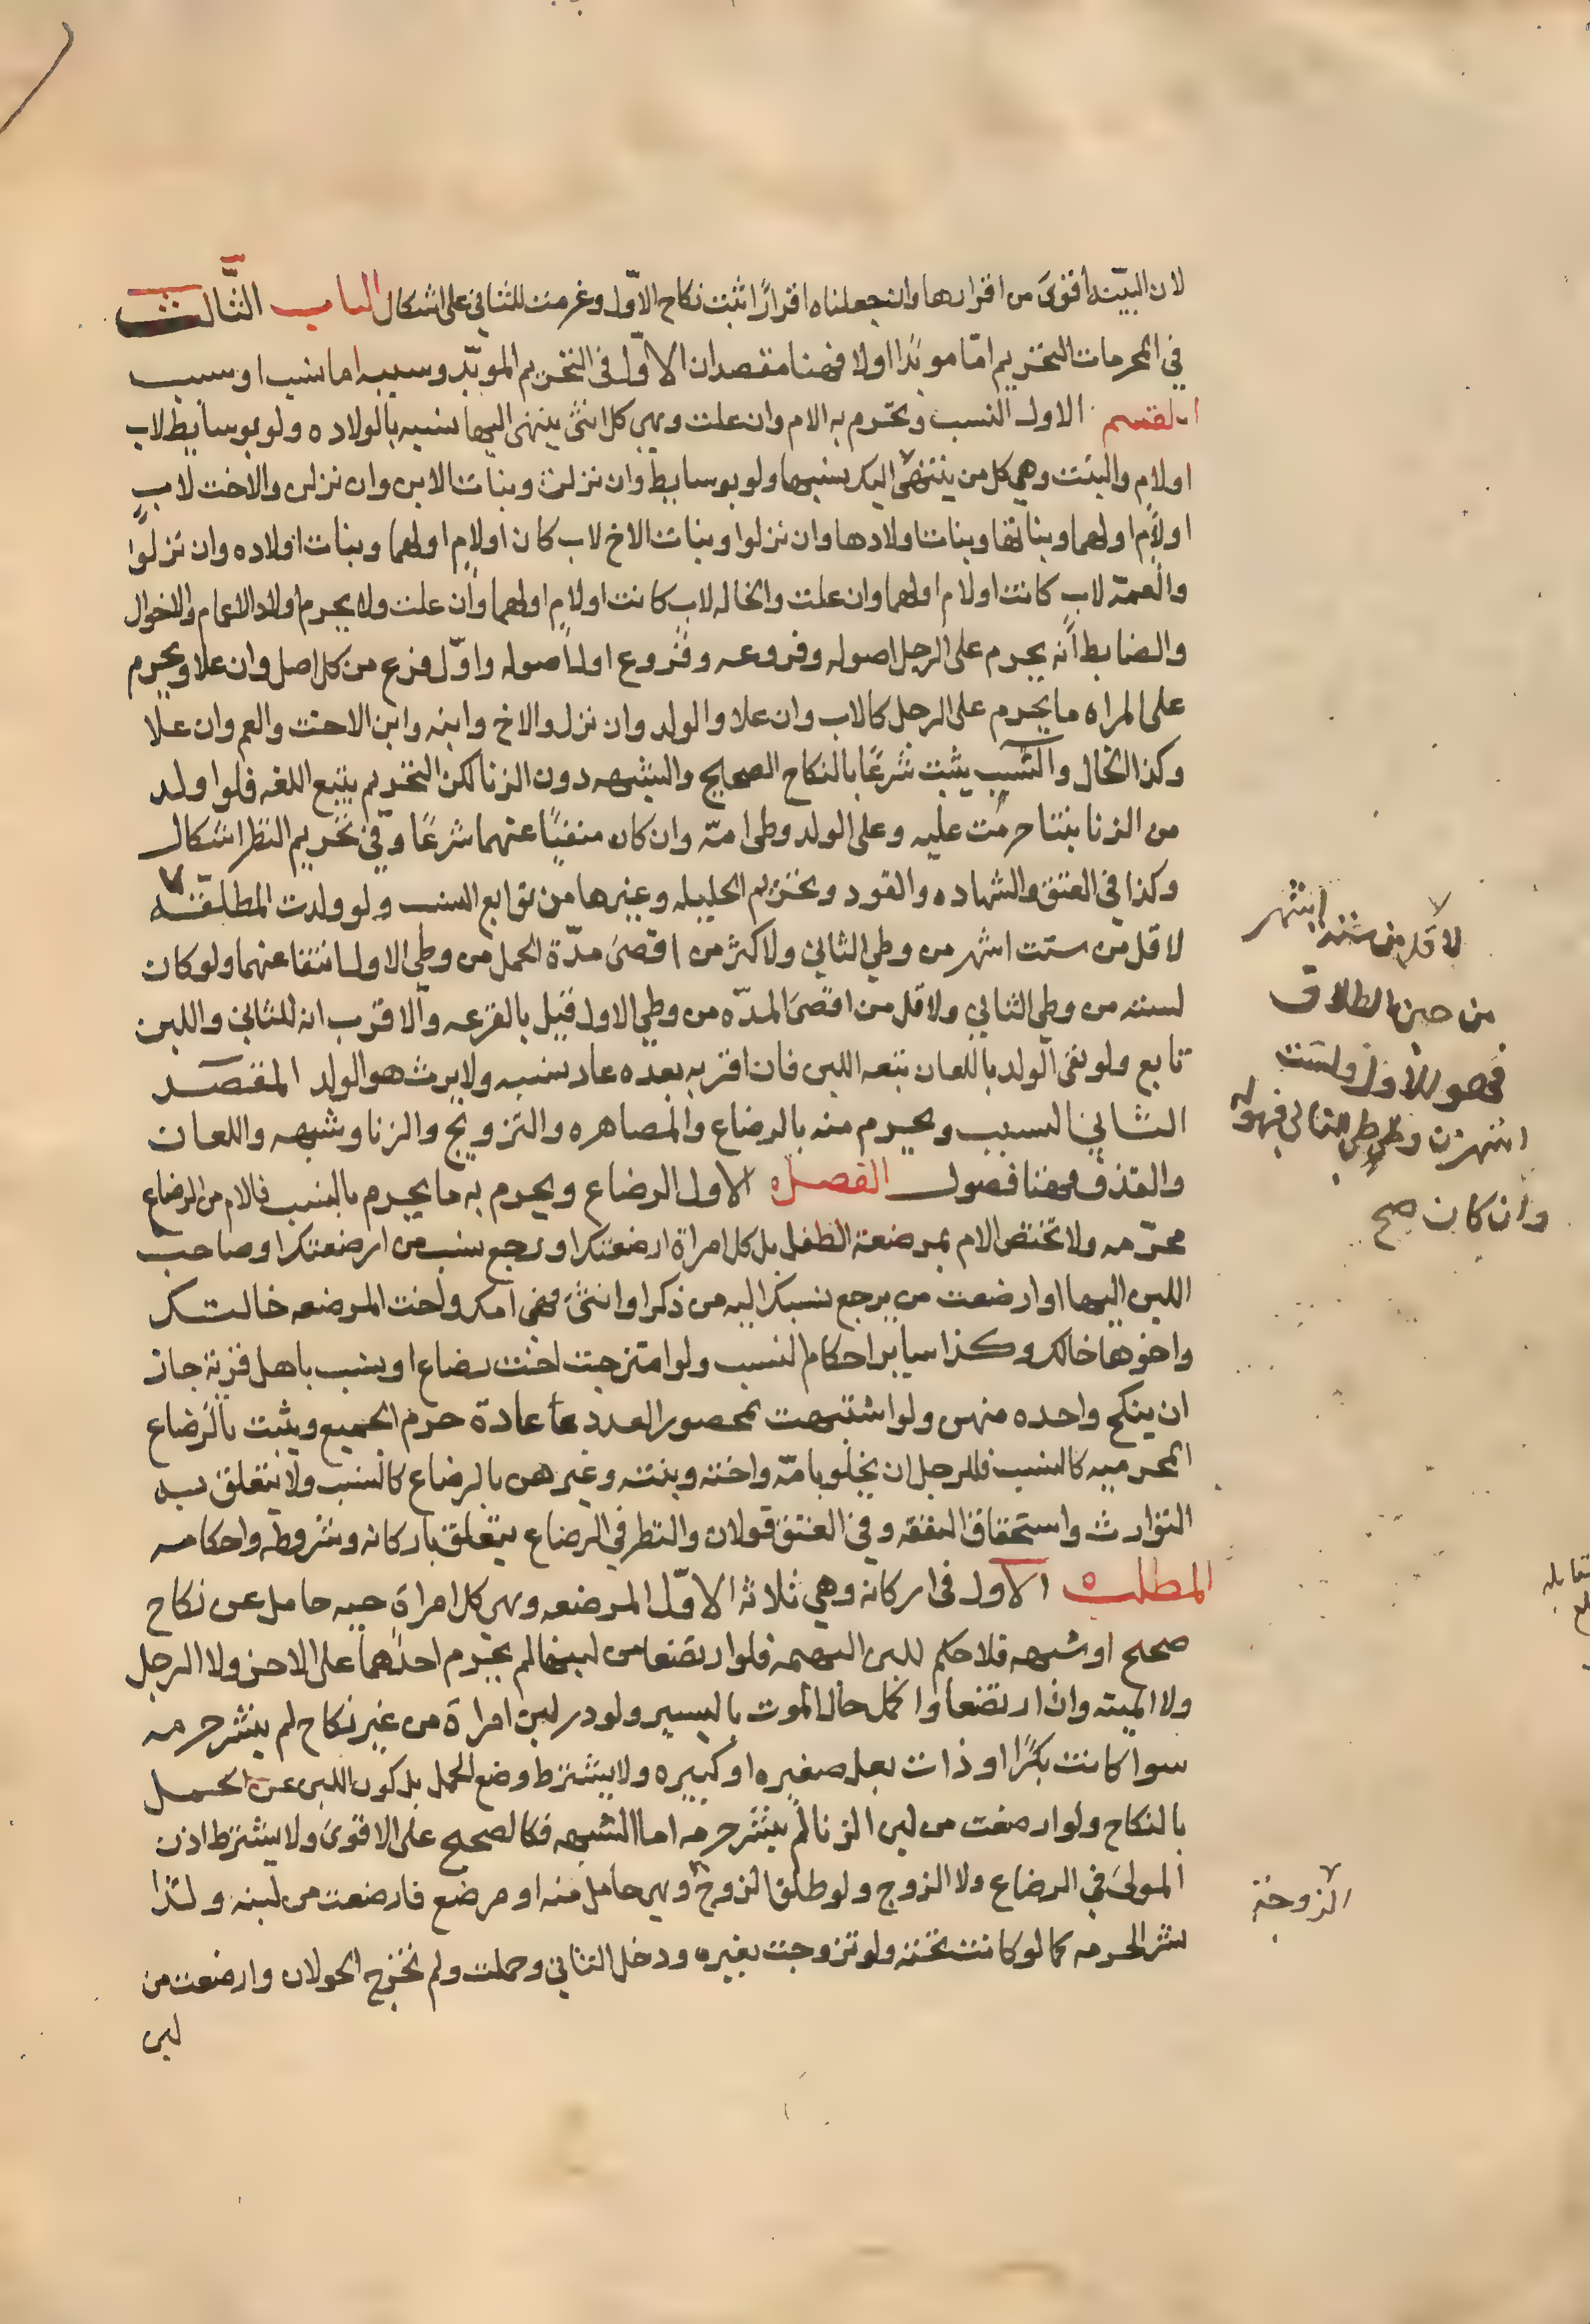 لان البينة اقوى من اقرارها وان جعلناه اقرارًا ثبت نكاح الاوّل وغرمت للثاني على اشكال الباب الثّالث
في المحرمات التحريم امّا موبّدا اولا فهنا مقصدان الاوّل فى التحريم الموبّد وسببه اما نسب او سبب
القسم الاول النسب ويحرم به الام وان علت وهي كل انثى ينتهى اليها نسبه بالولاده ولو بوسايط لاب
اولام والبنت وهي كل من ينتهى اليك نسبها ولو بوسايط وان نزلت وبنات الابن وان نزلن والاخت لاب
اولام اولهما وبناتها وبنات اولادها وان نزلوا وبنات الاخ لاب كان اولام اولهما وبنات اولاده وان نزلوا
والعمة لاب كانت اولام اولهما وان علت والخاله لاب كانت اولام اولهما وان علت ولا يحرم اولاد الاعمام والاخوال
والضابط أنه يحرم على الرجل اصوله وفروعه وفروع اول اصوله واوّل فرع من كل اصل وان علا ويحرم
على المراه ما يحرم على الرجل كالاب وان علا والولد وان نزل والاخ وابنه وابن الاخت والعم وان علا
وكذا الخال والنسب يثبت شرعًا بالنكاح الصحيح والشبهه دون الزنا لكن التحريم يتبع اللغه فلو اولد
من الزنا بنتا حرمت عليه وعلى الولد وطى امّه وان كان منفيًا عنهما شرعًا وفي تحريم النظر اشكال
وكذا في العتق والشهاده والقود وتحريم الحليله وغيرها من توابع النسب ولو ولدت المطلقة
لاقل من ستت اشهر من وطي الثاني ولاكثر من اقصى مدّة الحمل من وطي الاول انتفا عنهما ولو كان
لسته من وطي الثاني ولاقل من اقصى المدّه من وطي الاول قيل بالقرعه والاقرب انه للثاني واللبن
تابع ولو نفى الولد باللعان تبعه اللبن فان اقر به بعده عاد نسبه ولا يرث هو الولد المقصد
الثاني السبب ويحرم منه بالرضاع والمصاهره والتزويج والزنا وشبهه واللعان
والقذف فهنا فصول الفصل الاول الرضاع ويحرم به ما يحرم بالنسب فالام من الرضاع
محرّمه ولا تختص الام بمرضعة الطفل بل كل امراة ارضعتك او رجع نسب من ارضعتك او صاحب
اللبن اليها او ارضعت من يرجع نسبك اليه من ذكر او انثى فهى امك واخت المرضعه خالتك
واخوها خالك وكذا سايرا حكام النسب ولو امتزجت اخت رضاع او نسب باهل قرية جاز
ان ينكح واحده منهن ولو اشتبهت بمحصور العدد عادة حرم الجميع ويثبت بالرضاع
المحرميه كالنسب فللرجل ان يخلو بامّه واخته وبنته وغيرهن بالرضاع كالنسب ولا يتعلق به
التوارث واستحقاق النفقه وفي العتق قولان والنظر في الرضاع يتعلق باركانه وشروطه واحكامه
المطلب الاول فى اركانه وهي ثلاثة الاوّل المرضعه وهي كل امراة حيه حامل عن نكاح
صحيح او شبهه فلا حكم للبن البهيمه فلو ارتضعا من لبنها لم يحرم احدهما على الاخر ولا الرجل
ولا الميته وان ارتضعا واكمل حال الموت باليسير ولو در لبن امراة من غير نكاح لم ينشر حرمه
سوا كانت بكرًا او ذات بعل صغيره او كبيره ولا يشترط وضع الحمل بل كون اللبن عن الحمل
بالنكاح ولو ارضعت من لبن الزنا لم ينشر حرمه اما الشبهه فكالصحيح على الاقوى ولا يشترط اذن
المولى في الرضاع ولا الزوج ولو طلق الزوج وهي حامل منه او مرضع فارضعت من لبنه ولدا
نشر الحرمه كما لو كانت تحته ولو تزوجت بغيره ودخل الثاني وحملت ولم تخرج الحولان وارضعت من
لبن
لاقل من ستة اشهر
من حين الطلاق
فهو للاول ولستت
اشهر من وطي الثاني فهو له
وان كان صح
الزوجة